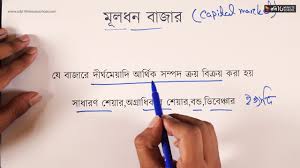 মূলধন বাজার (capital market)
যে বাজারে দীর্ঘমেয়াদি আর্থিক সম্পদ ক্রয় বিক্রয় করা হয়
সাধারণ শেয়ার,অগ্রাধিকার শেয়ার,বন্ড,ডিবেঞ্চার ইত্যাদি